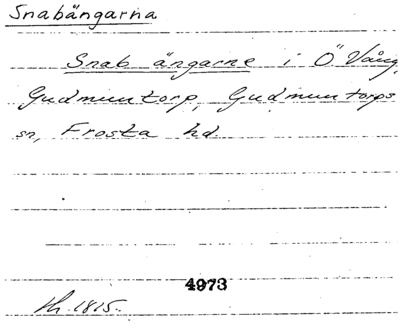 Snabängarna
Snab ängarne i Ö Vång,
Gudmuntorp, Gudmuntorps
sn, Frosta hd
4973
1815.